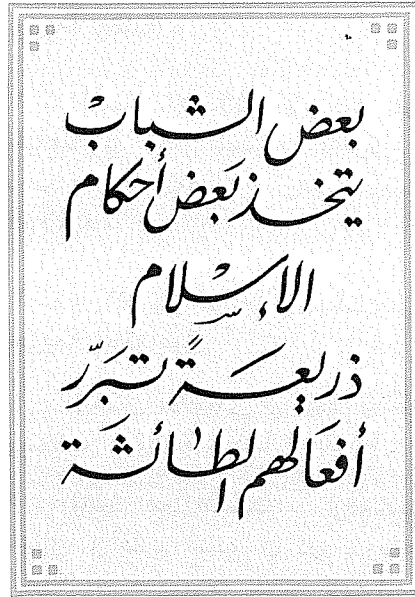 بعض الشباب
يتخذ بَعض أحكام
الإسلام
ذريعَة تبَرّر
أفعَالهم الطائشَة